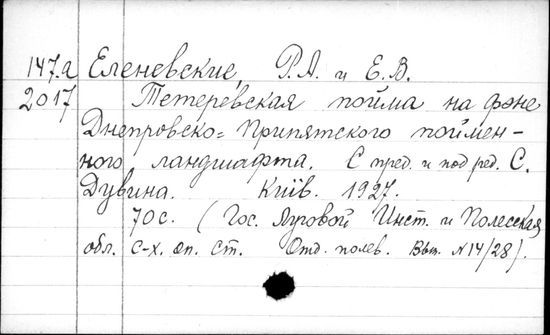 147.а Еленевские, Р.А. и Е.В.
2017 Тетеревская пойма на фоне
Днепровско=Припятского поймен-
ного ландшафта. С пред. и под ред. С.
Дувина. Київ. 1927.
70 с. (Гос. Луговой Инст. и Полесская
обл. с-х. оп. ст. Отд. полев. Вып. №14/28).